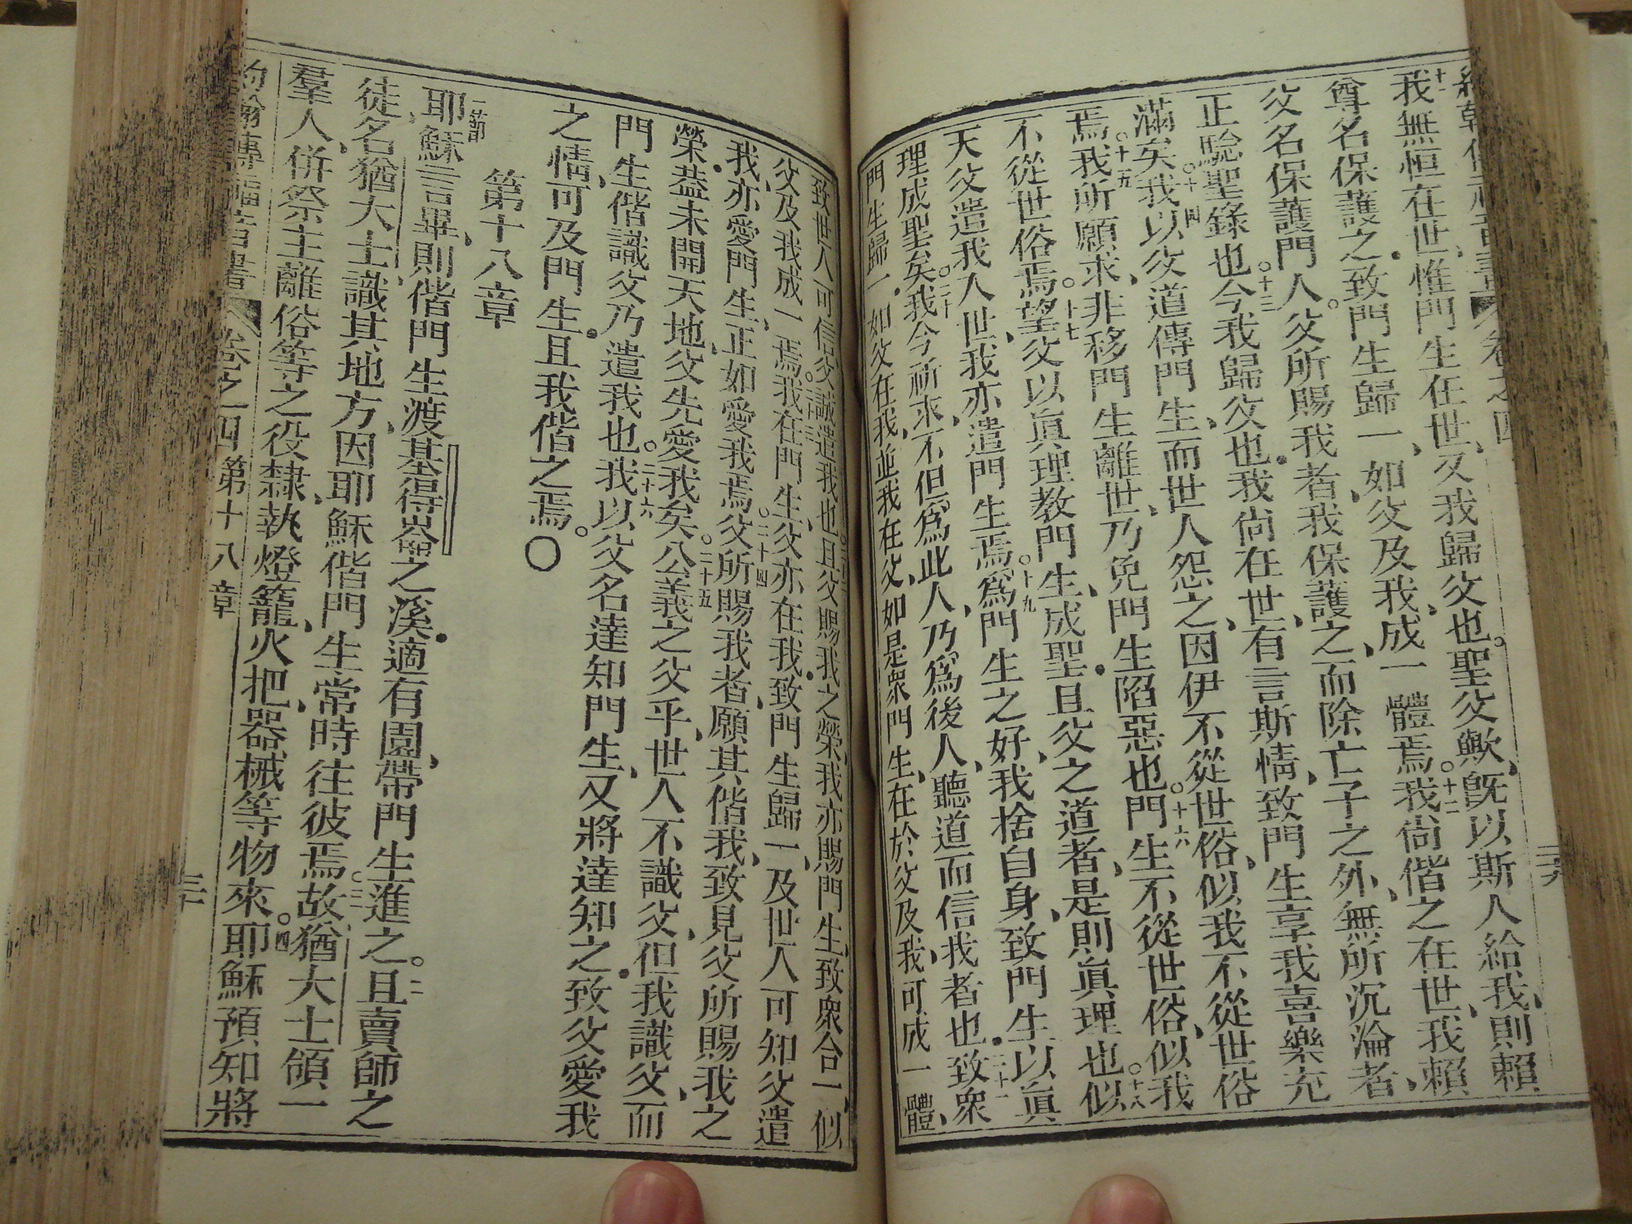 約翰傳福音書 卷之四
我無恒在世惟門生在世、又我歸父也。聖父歟、旣以斯人給我、則賴
十一
尊名保護之。致門生歸一、如父及我、成一體焉。我尙偕之在世、我賴
十二
父名保護門人。父所賜我者、我保護之、而除亡子之外、無所沉淪者、
正驗聖錄也。今我歸父也。我尙在世、有言斯情、致門生享我喜樂充
十三
滿矣。我以父道傳門生、而世人怨之、因伊不從世俗、似我不從世俗
十四
焉。我所願求、非移門生離世、乃免門生陷惡也。門生不從世俗、似我
十五
十六
不從世俗焉。望父以眞理教門生、成聖。且父之道者、是則眞理也。似
十七
十八
天父遣我入世、我亦遣門生焉。爲門生之好、我捨自身、致門生以眞
十九
理成聖矣。我今祈求、不但爲此人、乃爲後人、聽道而信我者也。致衆
二十
二十一
門生歸一、如父在我、並我在父、如是衆門生、在於父及我、可成一體、
致世人可信父誠遣我也。且父賜我之榮、我亦賜門生、致衆合一、似
父及我成一焉。我在門生、父亦在我、致門生歸一、及世人可知父遣
我、亦愛門生、正如愛我焉。父所賜我者、願其偕我、致見父所賜我之
二十四
榮。葢未開天地、父先愛我矣。公義之父乎、世人不識父、但我識父、而
二十五
門生偕識父乃遣我也。我以父名達知門生、又將達知之。致父愛我
二十六
之情、可及門生。且我偕之焉。〇
第十八章
一節
耶穌言畢、則偕門生渡基得崙之溪。適有園、帶門生進之。且賣師之
二
徒、名猶大士、識其地方、因耶穌偕門生常時往彼焉。故猶大士領一
三
羣人、併祭主離俗等之役隸、執燈籠、火把、器械等物來。耶穌預知將
四
約翰傳福音書 卷之四 第十八章